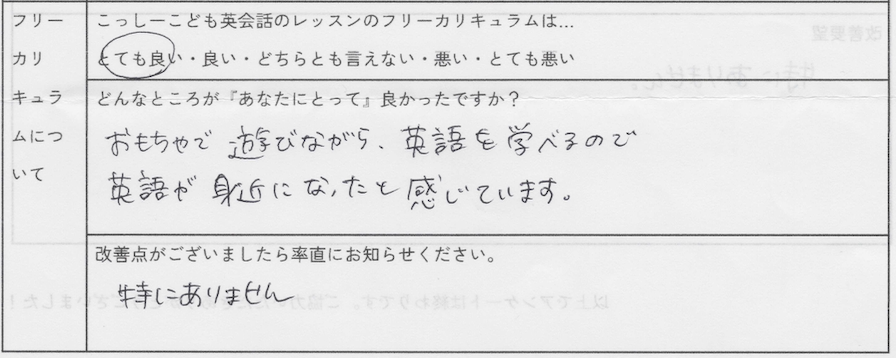 フリーカリキュラムについて
こっしーこども英会話のレッスンのフリーカリキュラムは…
とても良い・良い・どちらとも言えない・悪い・とても悪い
どんなところが『あなたにとって』良かったですか？
おもちゃで遊びながら、英語を学べるので
英語が身近になったと感じています。
改善点がございましたら率直にお知らせください。
特にありません